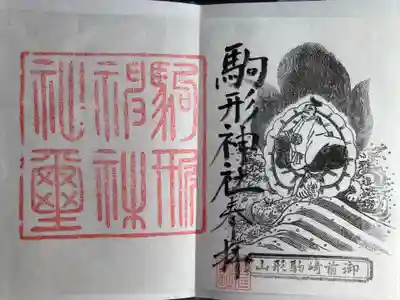 駒形神社奉拝
御前崎駒形山
駒形
神社
璽